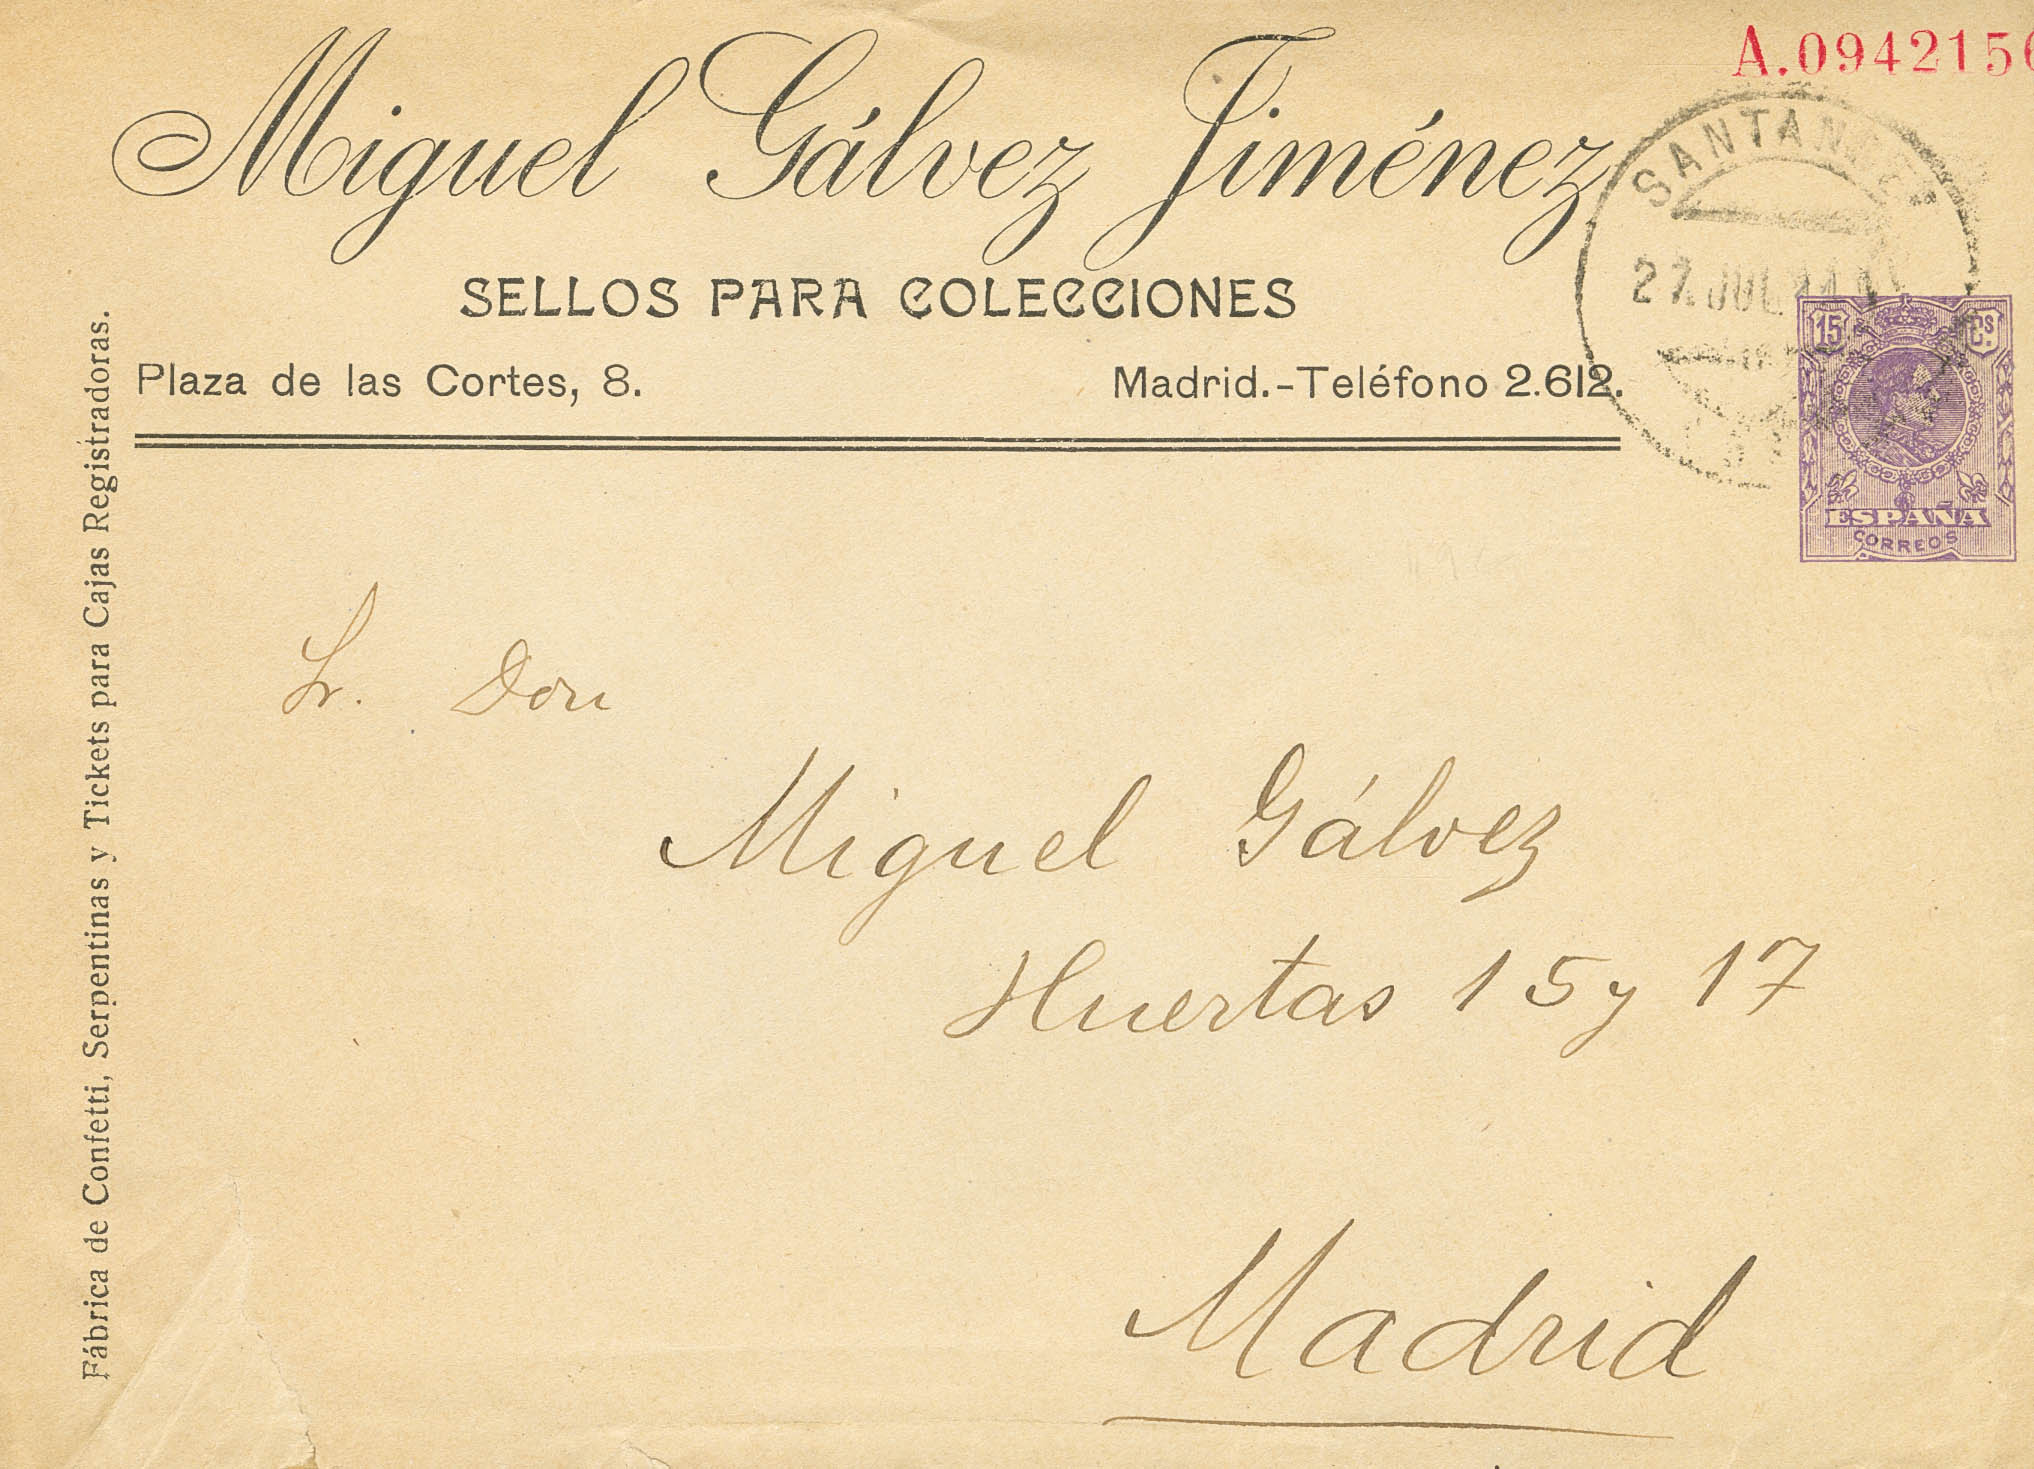 Miguel Gálvez Jiménez
SELLOS PARA COLECCIONES
Plaza de las Cortes, 8.
Madrid.-Teléfono 2.612.
A.094215
SANTANDER
27 JUL
15 Cs.
ESPAÑA
CORREOS
Fábrica de Confetti, Serpentinas y Tickets para Cajas Registradoras.
Sr. Don
Miguel Gálvez
Huertas 15 y 17
Madrid